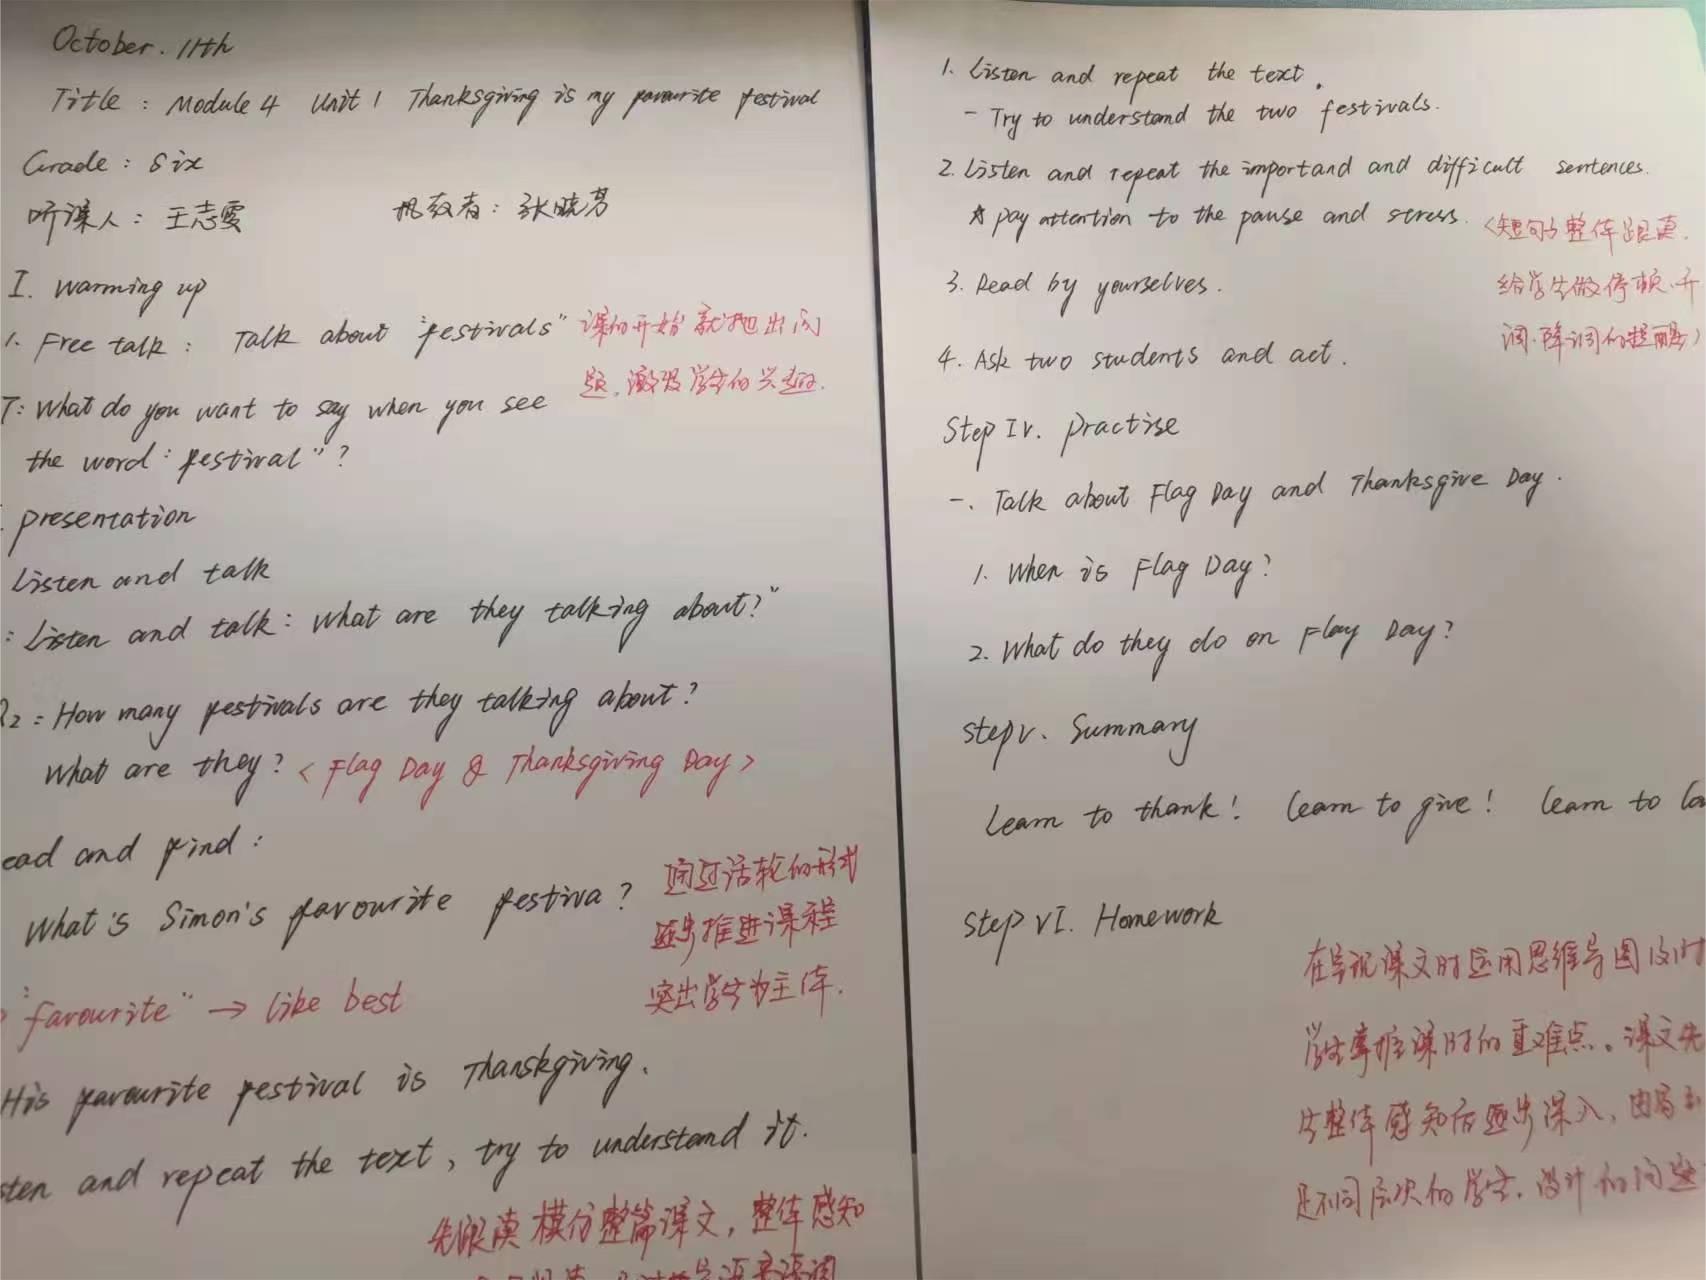 October. 11th
Title : Module 4 Unit 1 Thanksgiving is my favourite festival
Grade : Six
听课人：王志雯 执教者：张晓芳
I. Warming up
1. Free talk : Talk about "festivals" 课的开始就抛出问
题，激发学生的兴趣.
T: What do you want to say when you see
the word : festival" ?
. presentation
Listen and talk
: Listen and talk : What are they talking about?"
Q2 : How many festivals are they talking about?
What are they? < Flag Day & Thanksgiving Day >
ead and find :
What's Simon's favourite festiva ? 通过话轮的形式
逐步推进课程
突出学生为主体.
"favourite" → like best
His favourite festival is Thanskgiving.
sten and repeat the text, try to understand it.
先跟读模仿整篇课文，整体感知
1. Listen and repeat the text.
- Try to understand the two festivals.
2. Listen and repeat the importand and difficult sentences.
☆ pay attention to the pause and stress. <短句与整体跟读.
给学生做停顿、升
3. Read by yourselves.
调、降调的提醒>
4. Ask two students and act.
Step IV. practise
一. Talk about Flag Day and Thanksgive Day.
1. When is Flag Day?
2. What do they do on Flay Day?
Step V. Summary
Learn to thank! Learn to give! Learn to
Step VI. Homework
在导说课文时运用思维导图及时
学生掌握课时的重难点。课文先
整体感知后逐步深入，由易
不同层次的学生，设计的问题